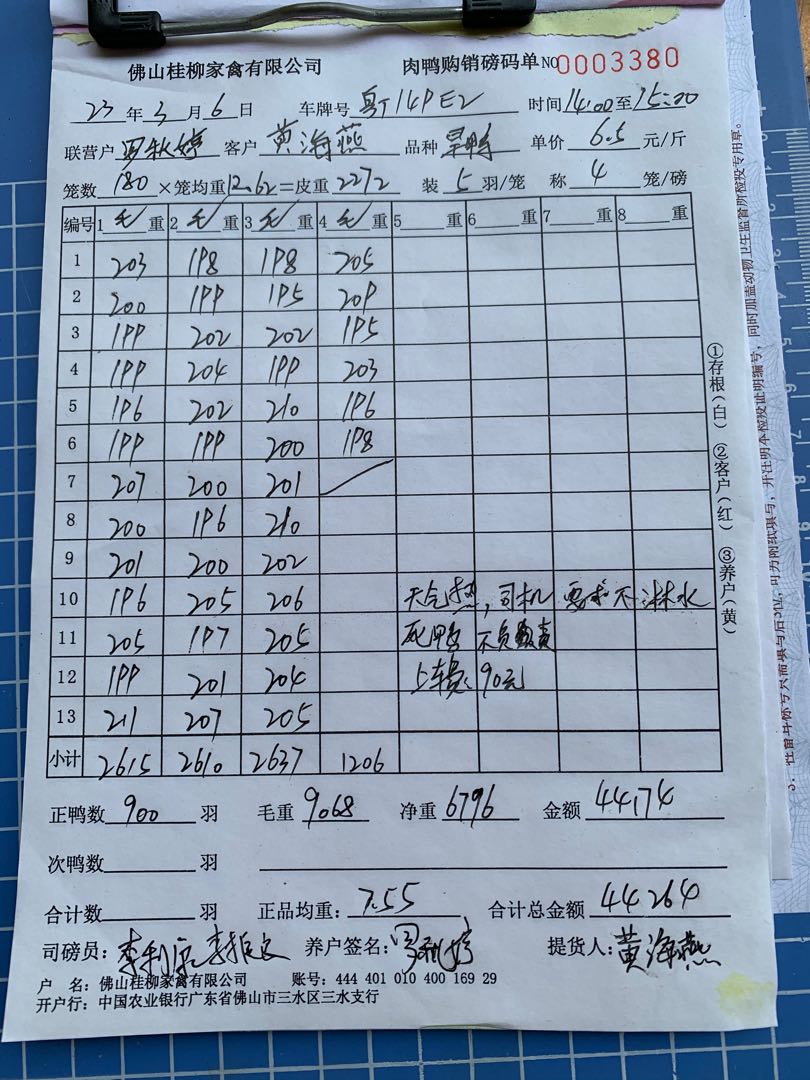 佛山桂柳家禽有限公司 肉鸭购销磅码单 NO 0003380
23年3月6日 车牌号 粤J14PE2 时间14:00至15:20
联营户 罗秋婷 客户 黄海燕 品种 旱鸭 单价 6.5 元/斤
笼数 180 ×笼均重12.62=皮重2272 装 5 羽/笼 称 4 笼/磅
编号 1 毛 重 2 毛 重 3 毛 重 4 毛 重 5 重 6 重 7 重 8 重
1 203 198 198 205
2 200 199 195 209
3 199 202 202 195
4 199 204 199 203
5 196 202 210 196
6 199 199 200 198
7 207 200 201
8 200 196 210
9 201 200 202
10 196 205 206 天气热，司机要求不淋水
11 205 197 205 死鸭不负责
12 199 201 204 上车费：90元
13 211 207 205
小计 2615 2610 2637 1206
正鸭数 900 羽 毛重 9068 净重 6796 金额 44174
次鸭数 羽
合计数 羽 正品均重： 7.55 合计总金额 44264
司磅员： 养户签名： 罗秋婷 提货人： 黄海燕
户 名：佛山桂柳家禽有限公司 账号：444 401 010 400 169 29
开户行：中国农业银行广东省佛山市三水区三水支行
①存根(白) ②客户(红) ③养户(黄)